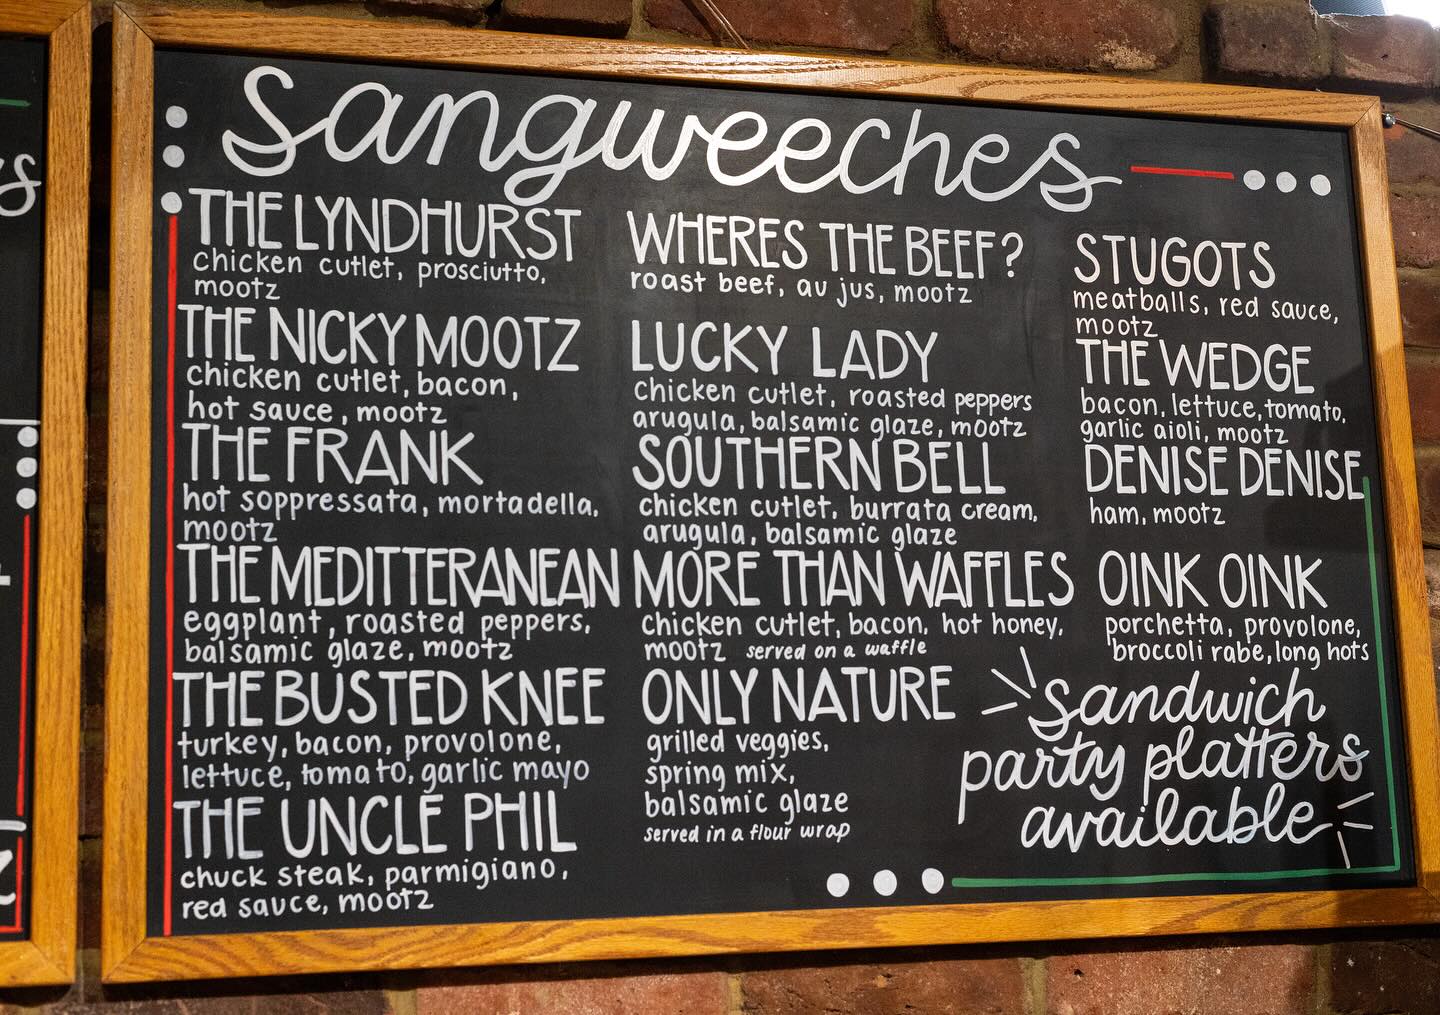 sangweeches
THE LYNDHURST
chicken cutlet, prosciutto,
mootz
THE NICKY MOOTZ
chicken cutlet, bacon,
hot sauce, mootz
THE FRANK
hot soppressata, mortadella,
mootz
THE MEDITTERANEAN
eggplant, roasted peppers,
balsamic glaze, mootz
THE BUSTED KNEE
turkey, bacon, provolone,
lettuce, tomato, garlic mayo
THE UNCLE PHIL
chuck steak, parmigiano,
red sauce, mootz
WHERES THE BEEF?
roast beef, au jus, mootz
LUCKY LADY
chicken cutlet, roasted peppers
arugula, balsamic glaze, mootz
SOUTHERN BELL
chicken cutlet, burrata cream,
arugula, balsamic glaze
MORE THAN WAFFLES
chicken cutlet, bacon, hot honey,
mootz served on a waffle
ONLY NATURE
grilled veggies,
spring mix,
balsamic glaze
served in a flour wrap
STUGOTS
meatballs, red sauce,
mootz
THE WEDGE
bacon, lettuce, tomato,
garlic aioli, mootz
DENISE DENISE
ham, mootz
OINK OINK
porchetta, provolone,
broccoli rabe, long hots
Sandwich
party platters
available